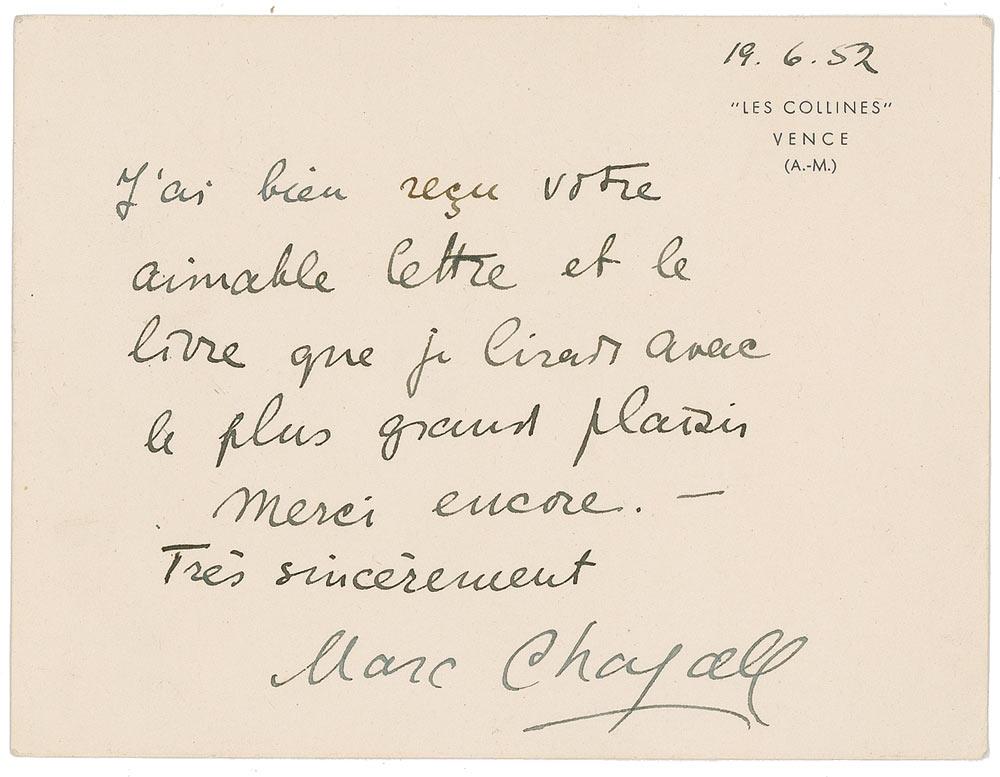 19. 6. 52
"LES COLLINES"
VENCE
(A.-M.)
J'ai bien reçu votre
aimable lettre et le
livre que je lirais avec
le plus grand plaisir
Merci encore. —
Très sincèrement
Marc Chagall